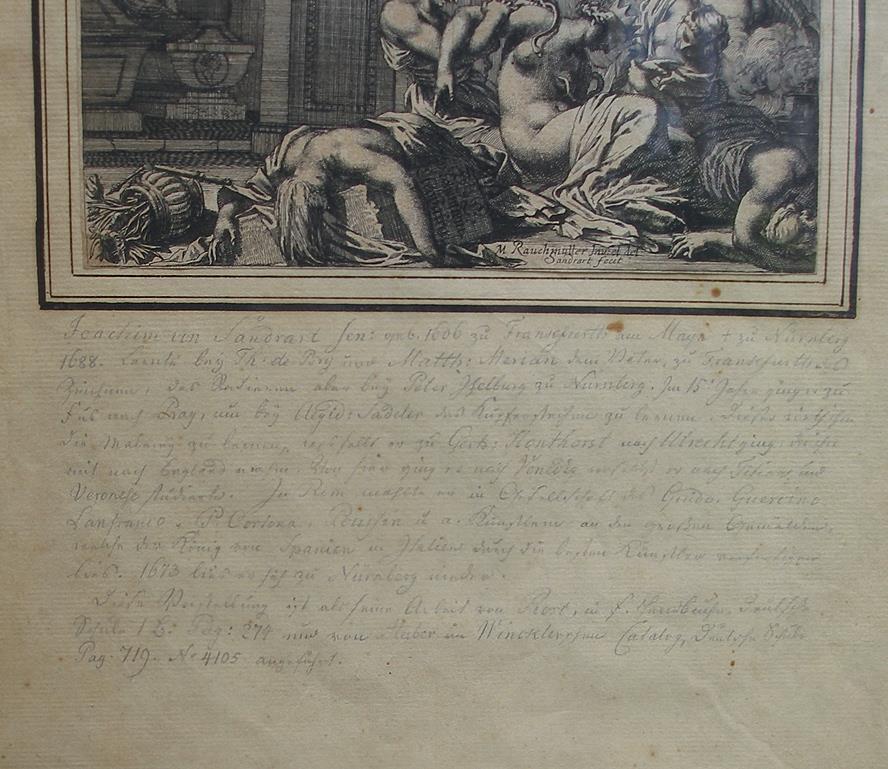 M. Rauchmüller Inv. et del
Sandrart fecit
Joachim von Sandrart sen: geb. 1606 zu Francfurth am Mayn † zu Nürnberg
1688. Lernte bey Th. de Bry und Matth: Merian dem Vater, zu Francfurth das
Zeichnen, das Radieren aber bey Peter Iselburg zu Nürnberg. Im 15 Jahre ging er zu
Fus nach Prag, um bey Aegid: Sadeler das Kupferstechen zu lernen. Dieser
die Malerey zu lernen, weshalb er zu Gerh: Honthorst nach Utrecht ging, der ihn
mit nach England nahm. Von hier ging er nach Venedig er nach Titian und
Veronese studierte. In Rom mahlte er in Gesellschaft des Guido, Guercino
Lanfranco, P. Cortona, Poussin u. a. Künstlern an den großen Gemälden,
welche der König von Spanien in Italien durch die besten Künstler verfertigen
lies. 1673 lies er sich zu Nürnberg nieder.
Diese Vorstellung ist als seine Arbeit von Rost, in s. Handbuche, Deutsche
Schule 1 B. Pag: 274 und von Huber im Wincklerschen Catalog, Deutsche Schule
Pag. 719. No 4105 angeführt.